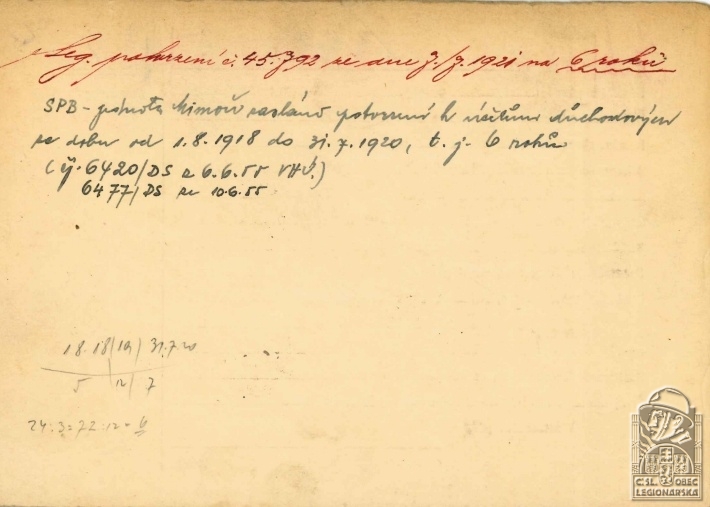 Leg. potvrzení č. 45.392 ze dne 7./7. 1921 na 6 roků
SPB - jednota Mimoň zasláno potvrzení k účelům důchodovým
za dobu od 1.8.1918 do 31.7.1920, t. j. 6 roků
(čj. 6420/DS z 6.6.55 VHÚ.)
6477/DS ze 10.6.55
1 8. 18 | 19 | 31.7 20
5 | 12 | 7
24.3=72:12=6
ČSL. OBEC
LEGIONÁŘSKÁ